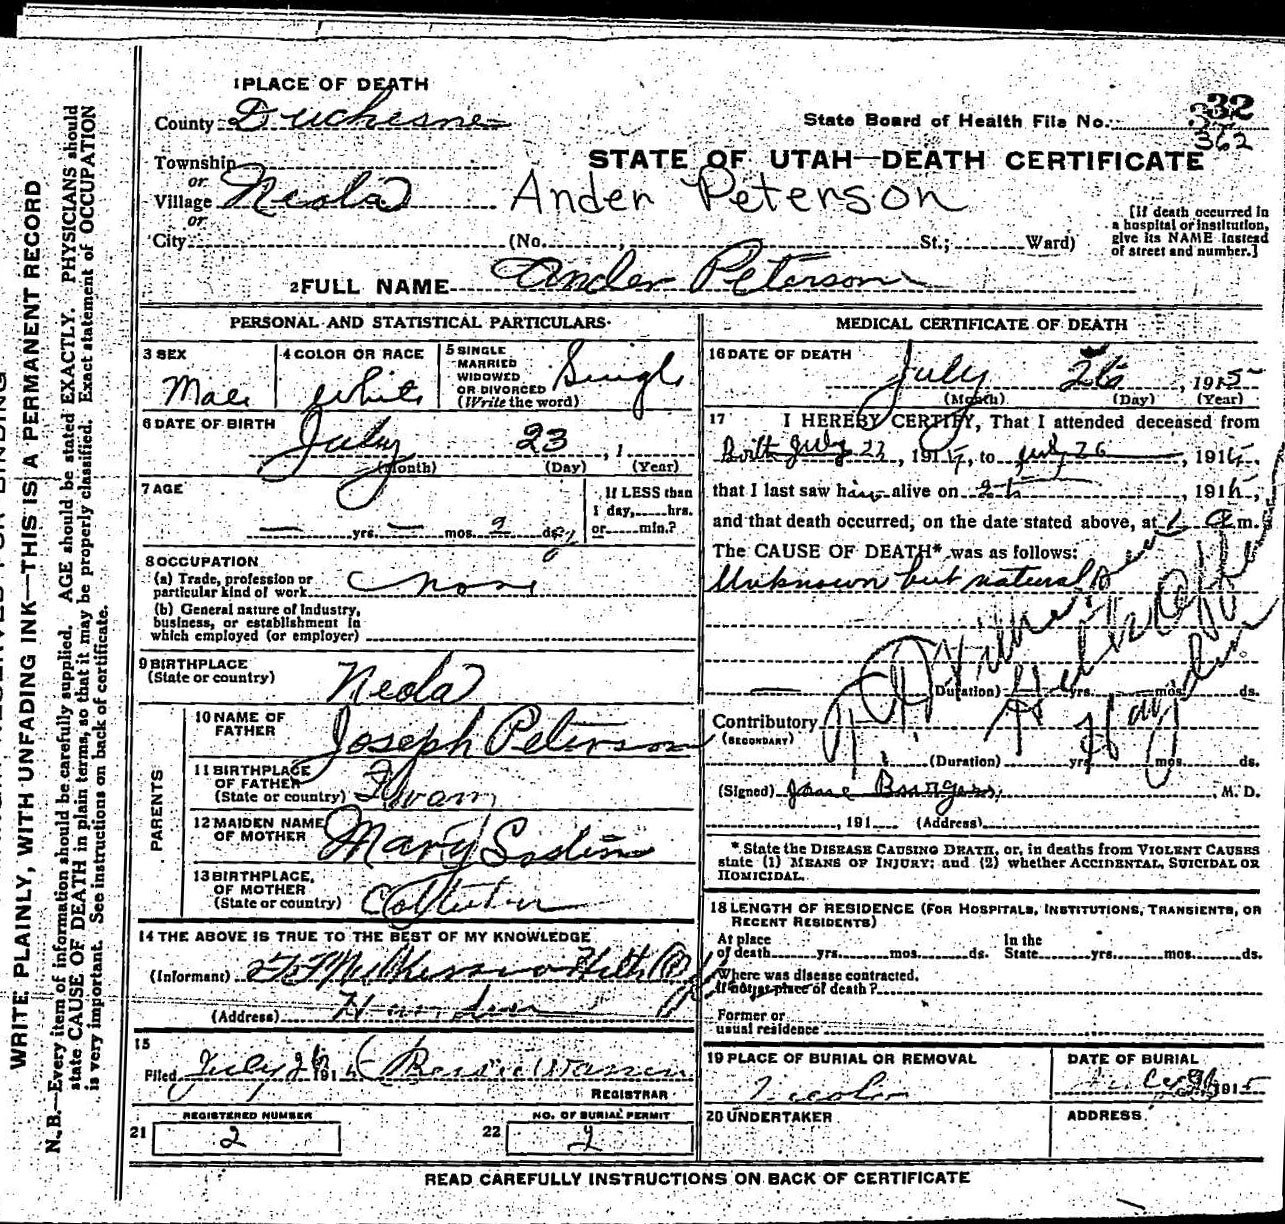 1 PLACE OF DEATH
County Duchesne
State Board of Health File No. 332
362
STATE OF UTAH—DEATH CERTIFICATE
Township
or
Village Neola
Ander Peterson
or
City (No. St.; Ward)
[If death occurred in
a hospital or institution,
give its NAME instead
of street and number.]
2 FULL NAME Ander Peterson
PERSONAL AND STATISTICAL PARTICULARS
3 SEX
Male
4 COLOR OR RACE
White
5 SINGLE
MARRIED
WIDOWED
OR DIVORCED
(Write the word)
Single
6 DATE OF BIRTH
July 23, 1
(Month) (Day) (Year)
7 AGE
If LESS than
1 day, hrs.
or min.?
yrs. mos. ds.
8 OCCUPATION
(a) Trade, profession or
particular kind of work none
(b) General nature of Industry,
business, or establishment in
which employed (or employer)
9 BIRTHPLACE
(State or country)
Neola
PARENTS
10 NAME OF
FATHER
Joseph Peterson
11 BIRTHPLACE
OF FATHER
(State or country)
12 MAIDEN NAME
OF MOTHER
Mary
13 BIRTHPLACE
OF MOTHER
(State or country)
14 THE ABOVE IS TRUE TO THE BEST OF MY KNOWLEDGE
(Informant)
(Address)
15
Filed July 26 191
REGISTRAR
REGISTERED NUMBER
21 2
NO. OF BURIAL PERMIT
22 2
MEDICAL CERTIFICATE OF DEATH
16 DATE OF DEATH
July 26, 1915
(Month) (Day) (Year)
17 I HEREBY CERTIFY, That I attended deceased from
July 23, 191 , to July 26, 191
that I last saw him alive on , 191
and that death occurred, on the date stated above, at a m.
The CAUSE OF DEATH* was as follows:
Unknown but natural
(Duration) yrs. mos. ds.
Contributory
(SECONDARY)
(Duration) yrs. mos. ds.
(Signed) , M. D.
, 191 (Address)
* State the DISEASE CAUSING DEATH, or, in deaths from VIOLENT CAUSES
state (1) MEANS OF INJURY; and (2) whether ACCIDENTAL, SUICIDAL OR
HOMICIDAL.
18 LENGTH OF RESIDENCE (FOR HOSPITALS, INSTITUTIONS, TRANSIENTS, OR
RECENT RESIDENTS)
At place
of death yrs. mos. ds.
In the
State yrs. mos. ds.
Where was disease contracted,
if not at place of death?
Former or
usual residence
19 PLACE OF BURIAL OR REMOVAL
Neola
DATE OF BURIAL
1915
20 UNDERTAKER
ADDRESS
READ CAREFULLY INSTRUCTIONS ON BACK OF CERTIFICATE
WRITE PLAINLY, WITH UNFADING INK—THIS IS A PERMANENT RECORD
N. B.—Every item of information should be carefully supplied. AGE should be stated EXACTLY. PHYSICIANS should
state CAUSE OF DEATH in plain terms, so that it may be properly classified. Exact statement of OCCUPATION
is very important. See instructions on back of certificate.